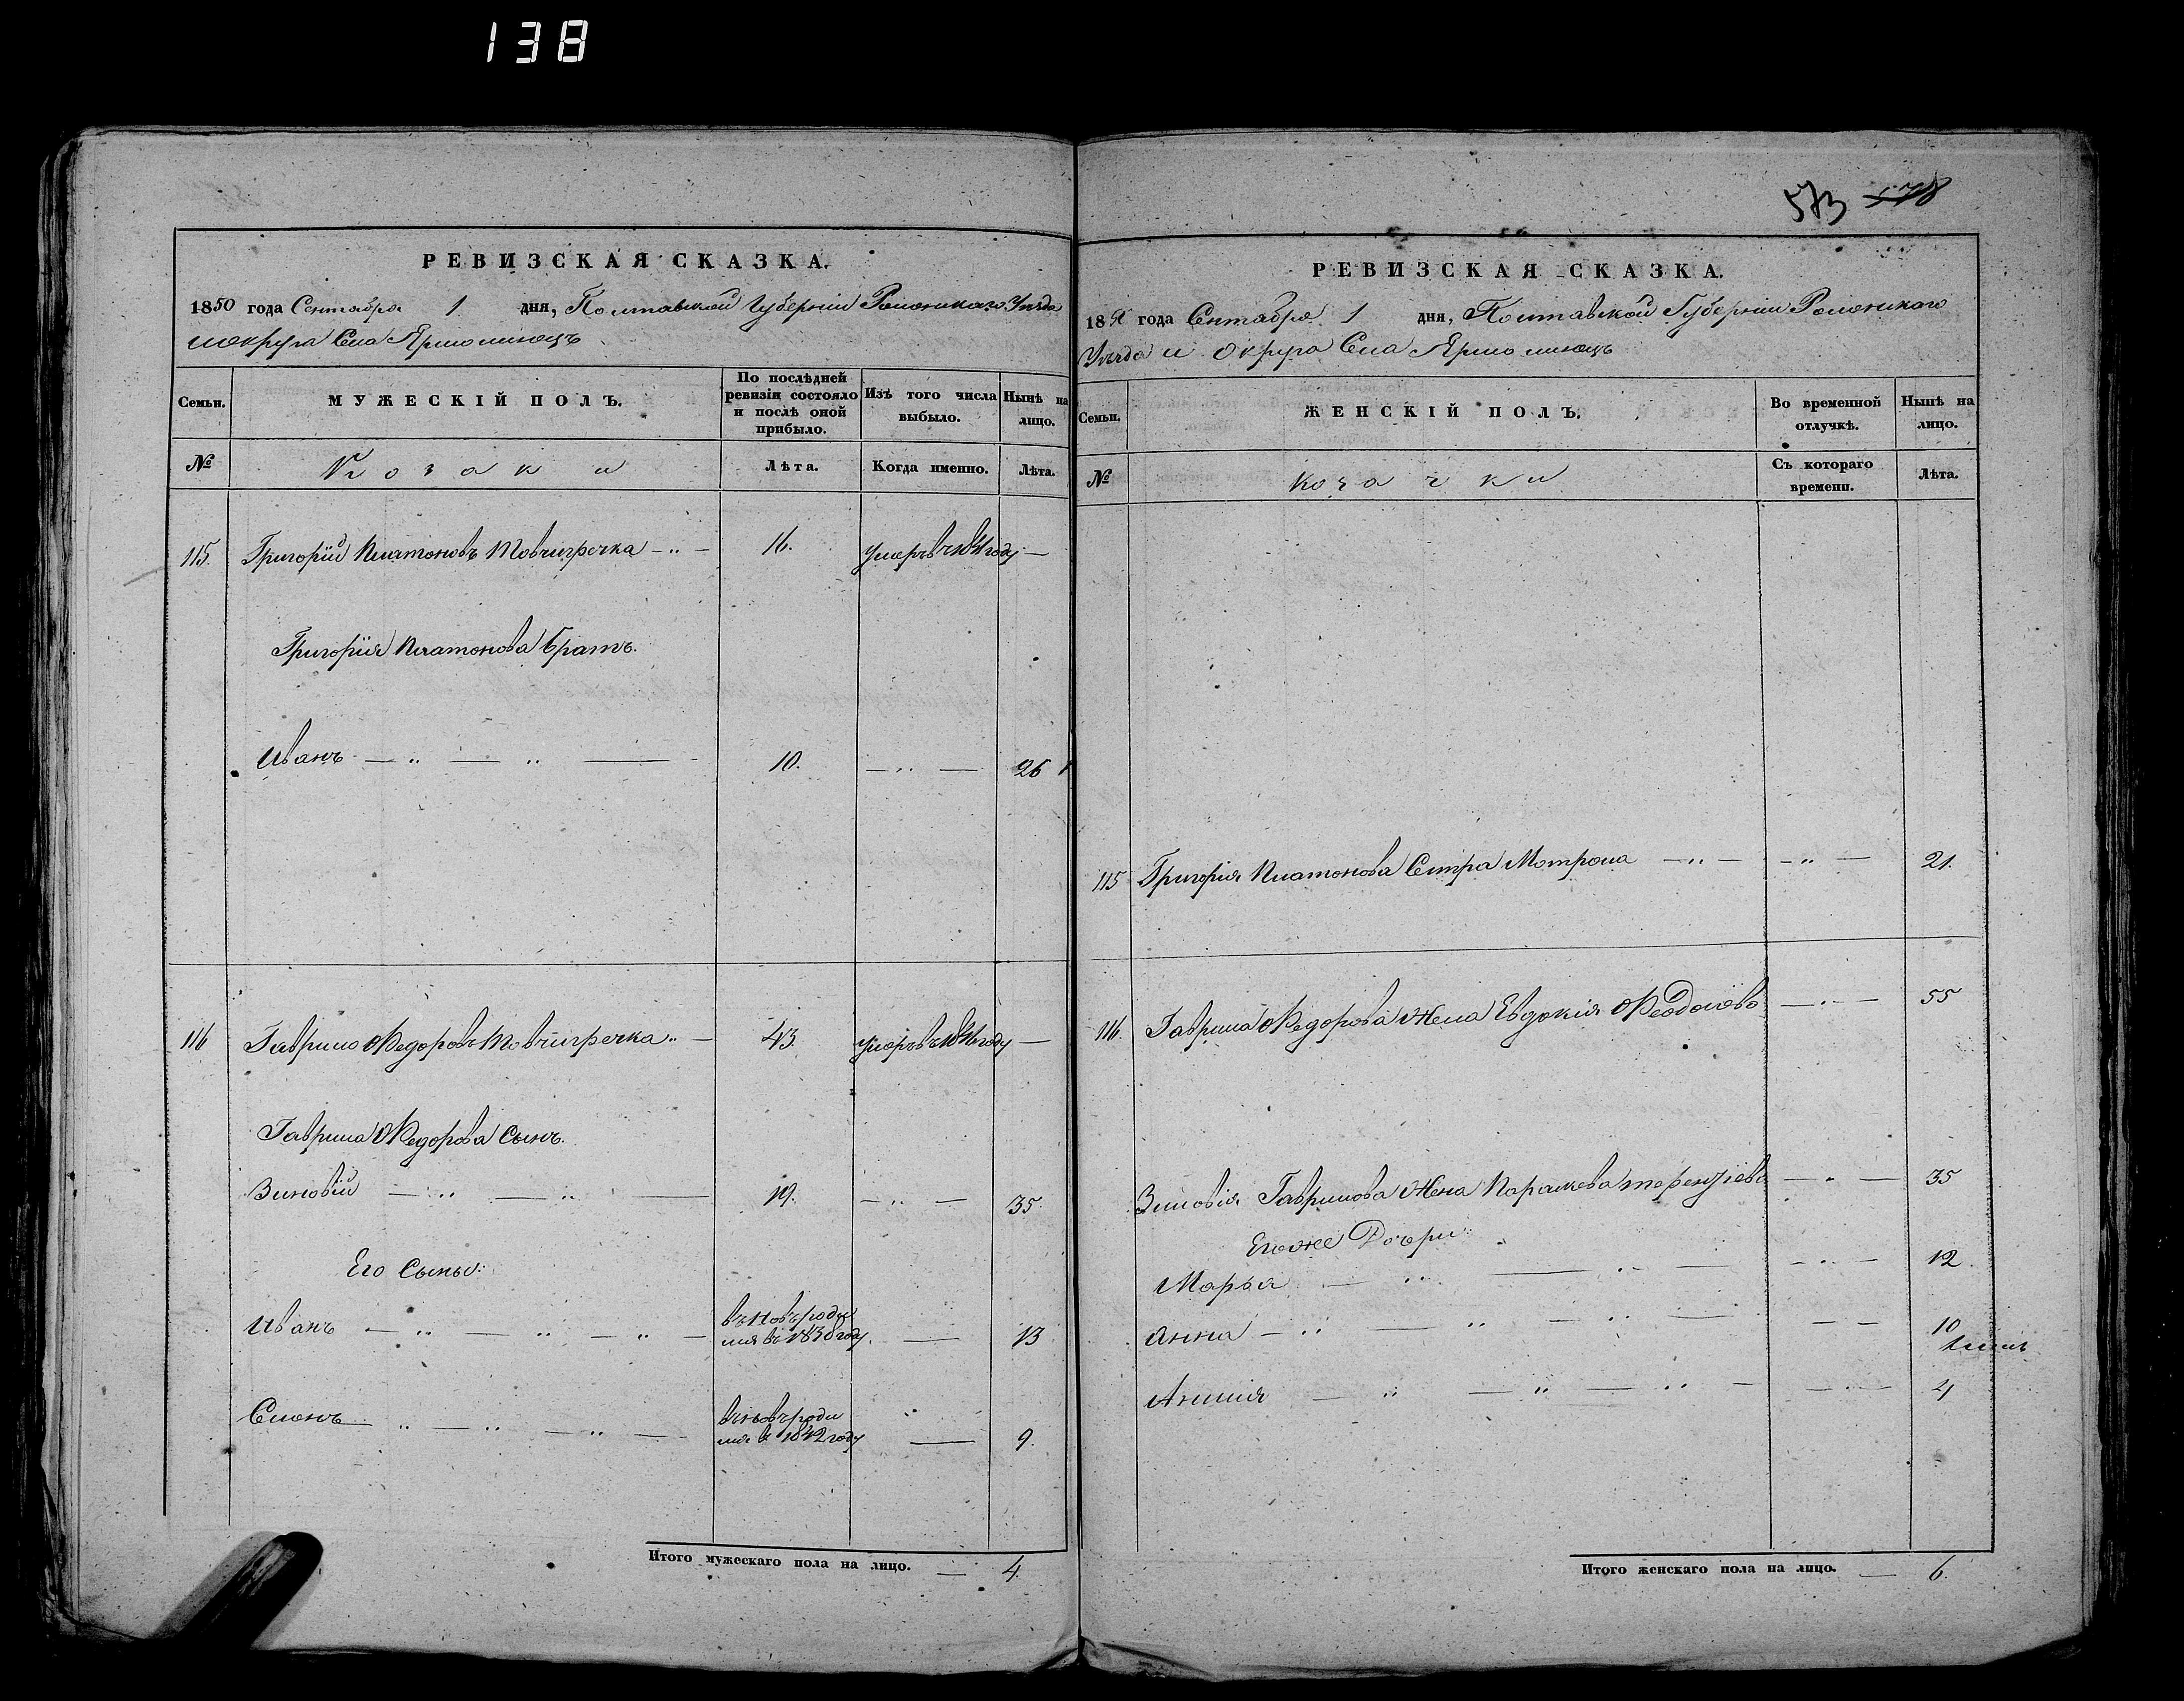 138
573 578
РЕВИЗСКАЯ СКАЗКА.
1850 года Сентября 1 дня, Полтавской Губерніи Роменскаго Уезда
и округа Села Ярмолинецъ
Семьи.
МУЖЕСКІЙ ПОЛЪ.
По послѣдней ревизіи состояло и послѣ оной прибыло.
Изъ того числа выбыло.
Нынѣ на лицо.
№
Козаки
Лѣта.
Когда именно.
Лѣта.
115. Григорій Платоновъ Товчигречка 16. умеръ в 1841 году
Григорія Платонова братъ.
Иванъ 10. 26
116 Гаврило Федоровъ Товчигречка 43. умеръ в году
Гаврила Федорова сынъ.
Зиновій 19. 35.
Его сыны:
Иванъ 13
въ новъ роди
лся въ году.
Семенъ 9.
въ новъ роди
лся в 1842 году
Итого мужескаго пола на лицо. 4.
РЕВИЗСКАЯ СКАЗКА.
1850 года Сентября 1 дня, Полтавской Губерніи Роменскаго
Уезда и округа Села Ярмолинецъ
Семьи.
ЖЕНСКІЙ ПОЛЪ.
Во временной отлучкѣ.
Нынѣ на лицо.
№
Козачки
Съ котораго времени.
Лѣта.
115 Григорія Платонова Сестра Мотрона 21.
116. Гаврила Федорова жена Евдокія 55
Зиновія Гаврилова жена Параскева Терентіева 35
Егоже Дочери
Марья 12.
Анна 10
Анна 4
Итого женскаго пола на лицо. 6.